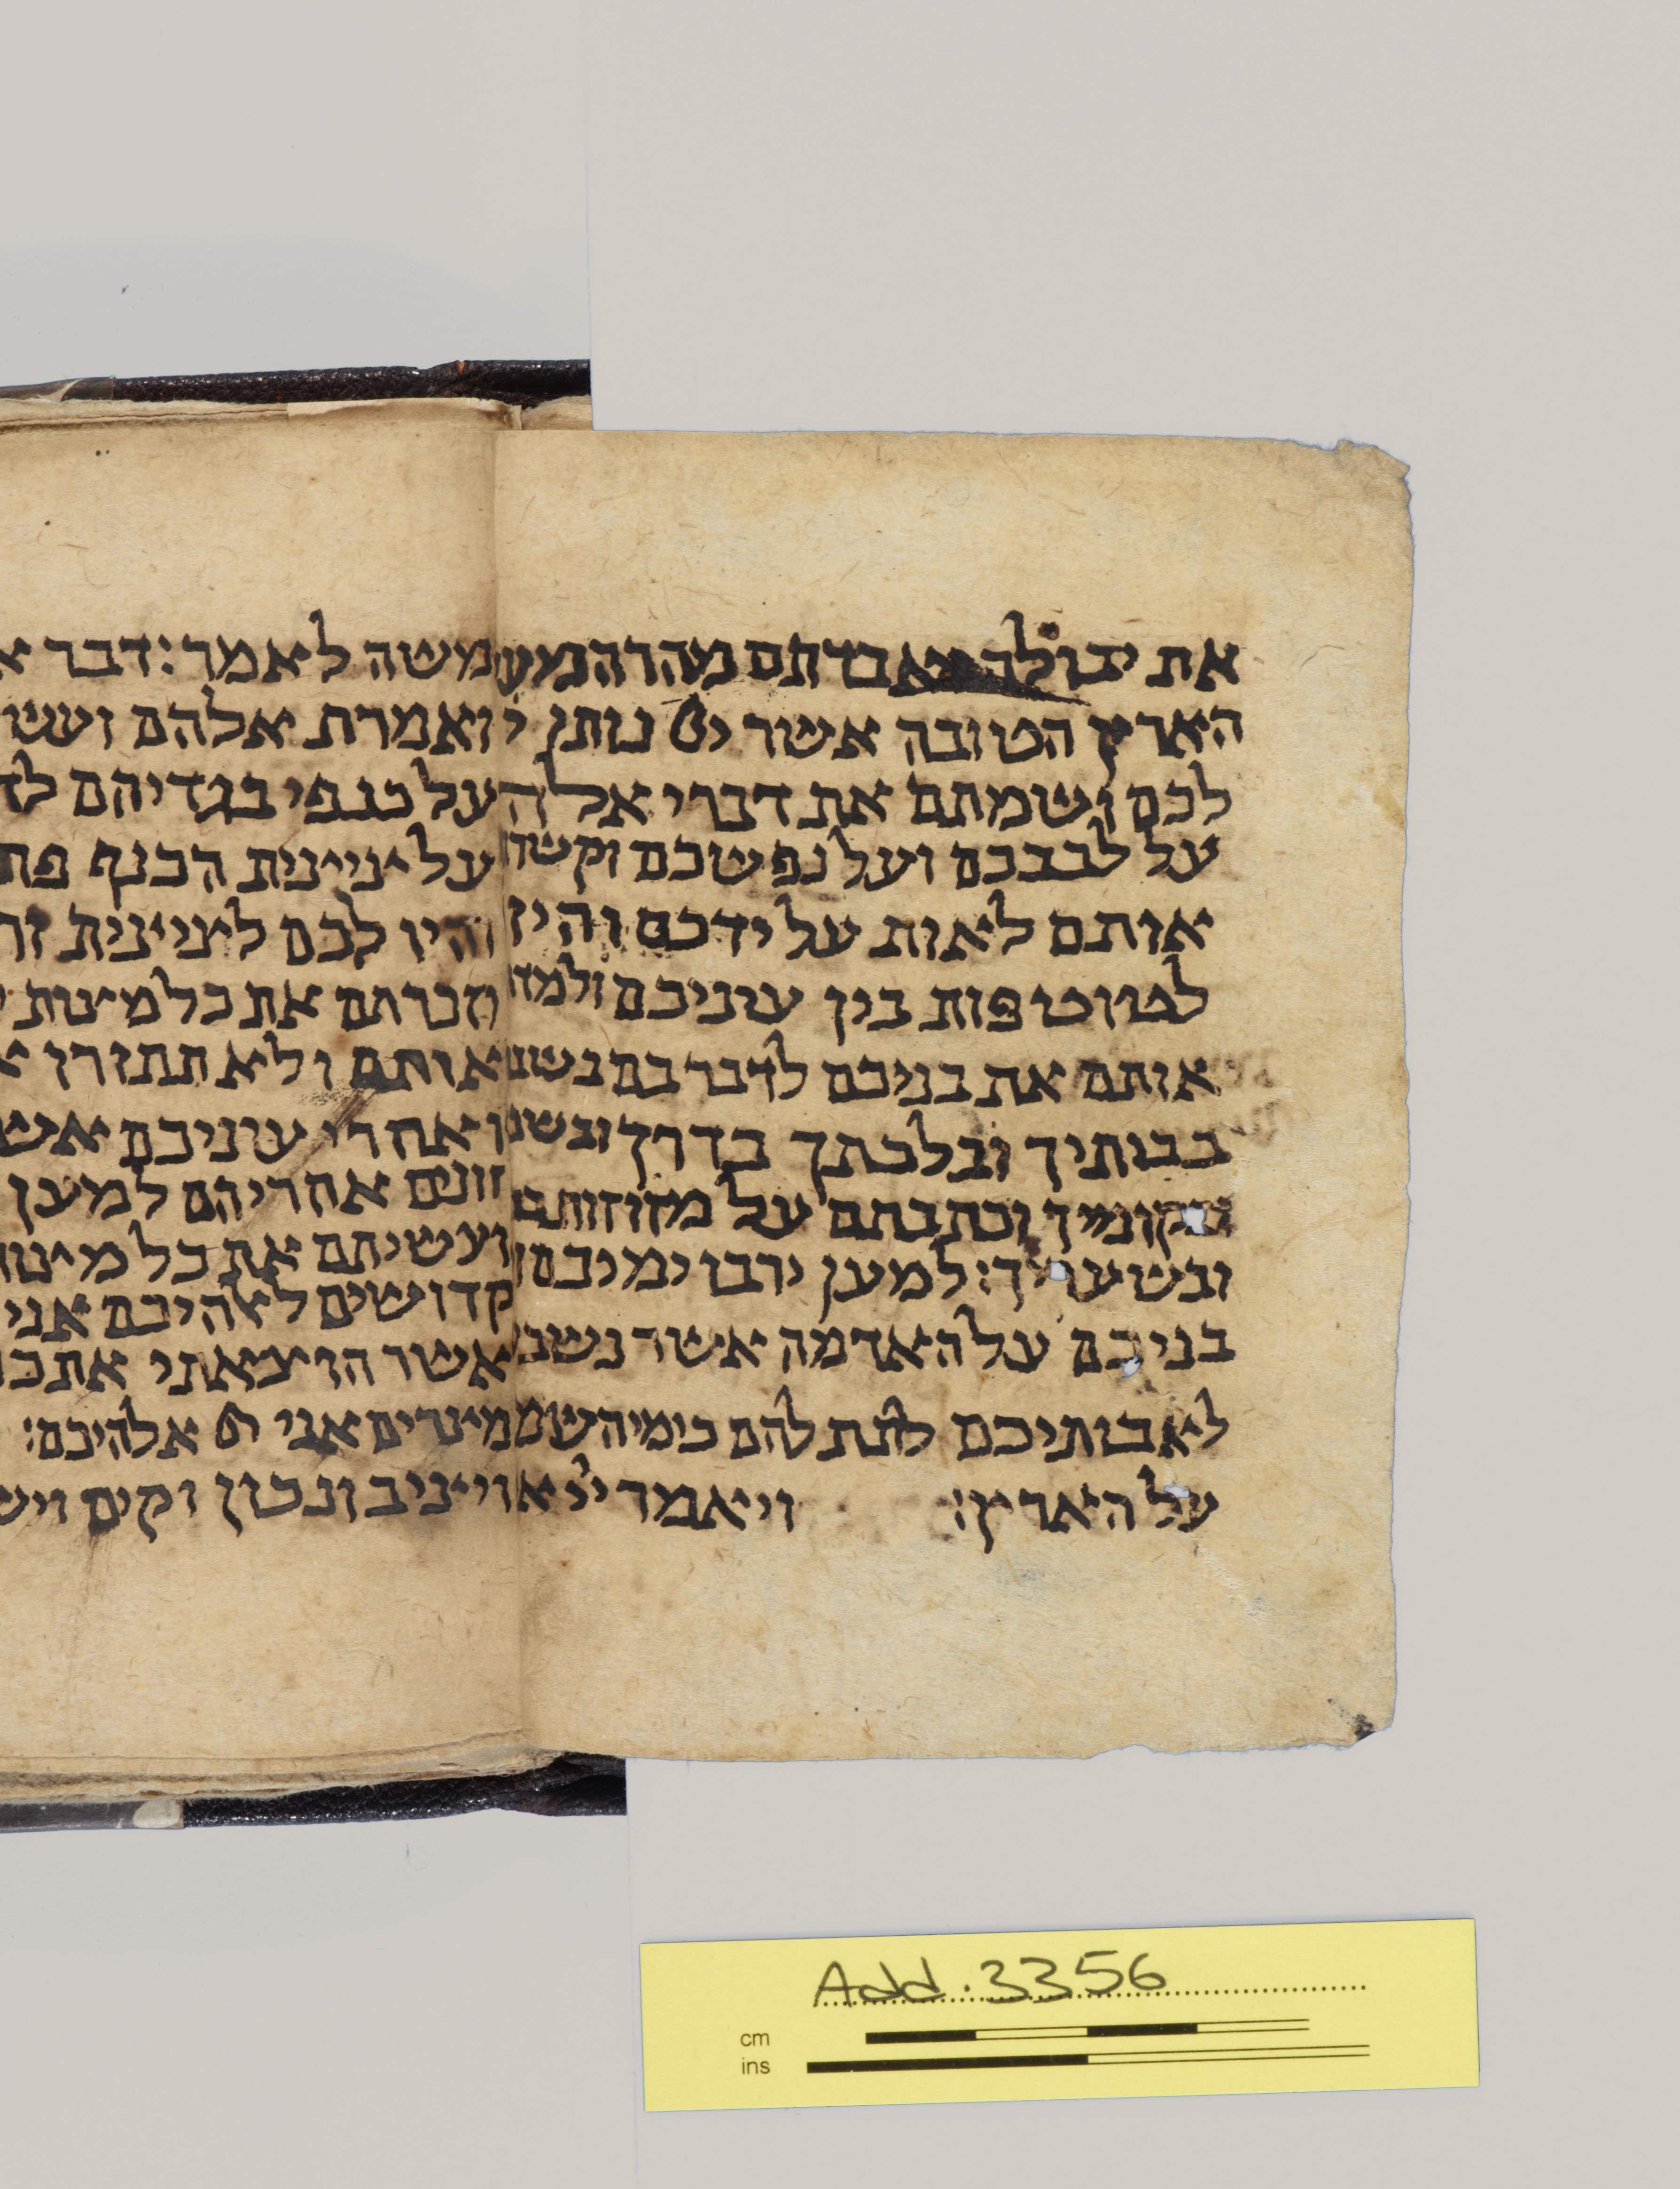 את יבולה ואבדתם מהרה מע
הארץ הטובה אשר יי נותן
לכם ושמתם את דברי אלה
על לבבכם ועל נפשכם וקשר
אותם לאות על ידכם והיו
לטוטפות בין עיניכם ולמד
אותם את בניכם לדבר בם בשב
בבותיך ובלכתך בדרך ובשכ
ובקומיך וכתבתם על מזוזות
ובשעריך: למען ירבו ימיכם
בניכם על האדמה אשר נשב
לאבותיכם לתת להם כימי השמ
על הארץ: ויאמר יי א
משה לאמר: דבר א
ואמרת אלהם ועשו
על כנפי בגדיהם לד
על ציצית הכנף פת
והיו לכם לציצית ור
וזכרתם את כל מצות
אותם ולא תתורו א
ואחרי עיניכם אש
זונים אחריהם למען
ועשיתם את כל מצות
קדושים לאלהיכם אני
אשר הוצאתי אתכם
מצרים אני יי אלהיכם:
ויציב ונכון וקים ויש
Add. 3356
cm
ins